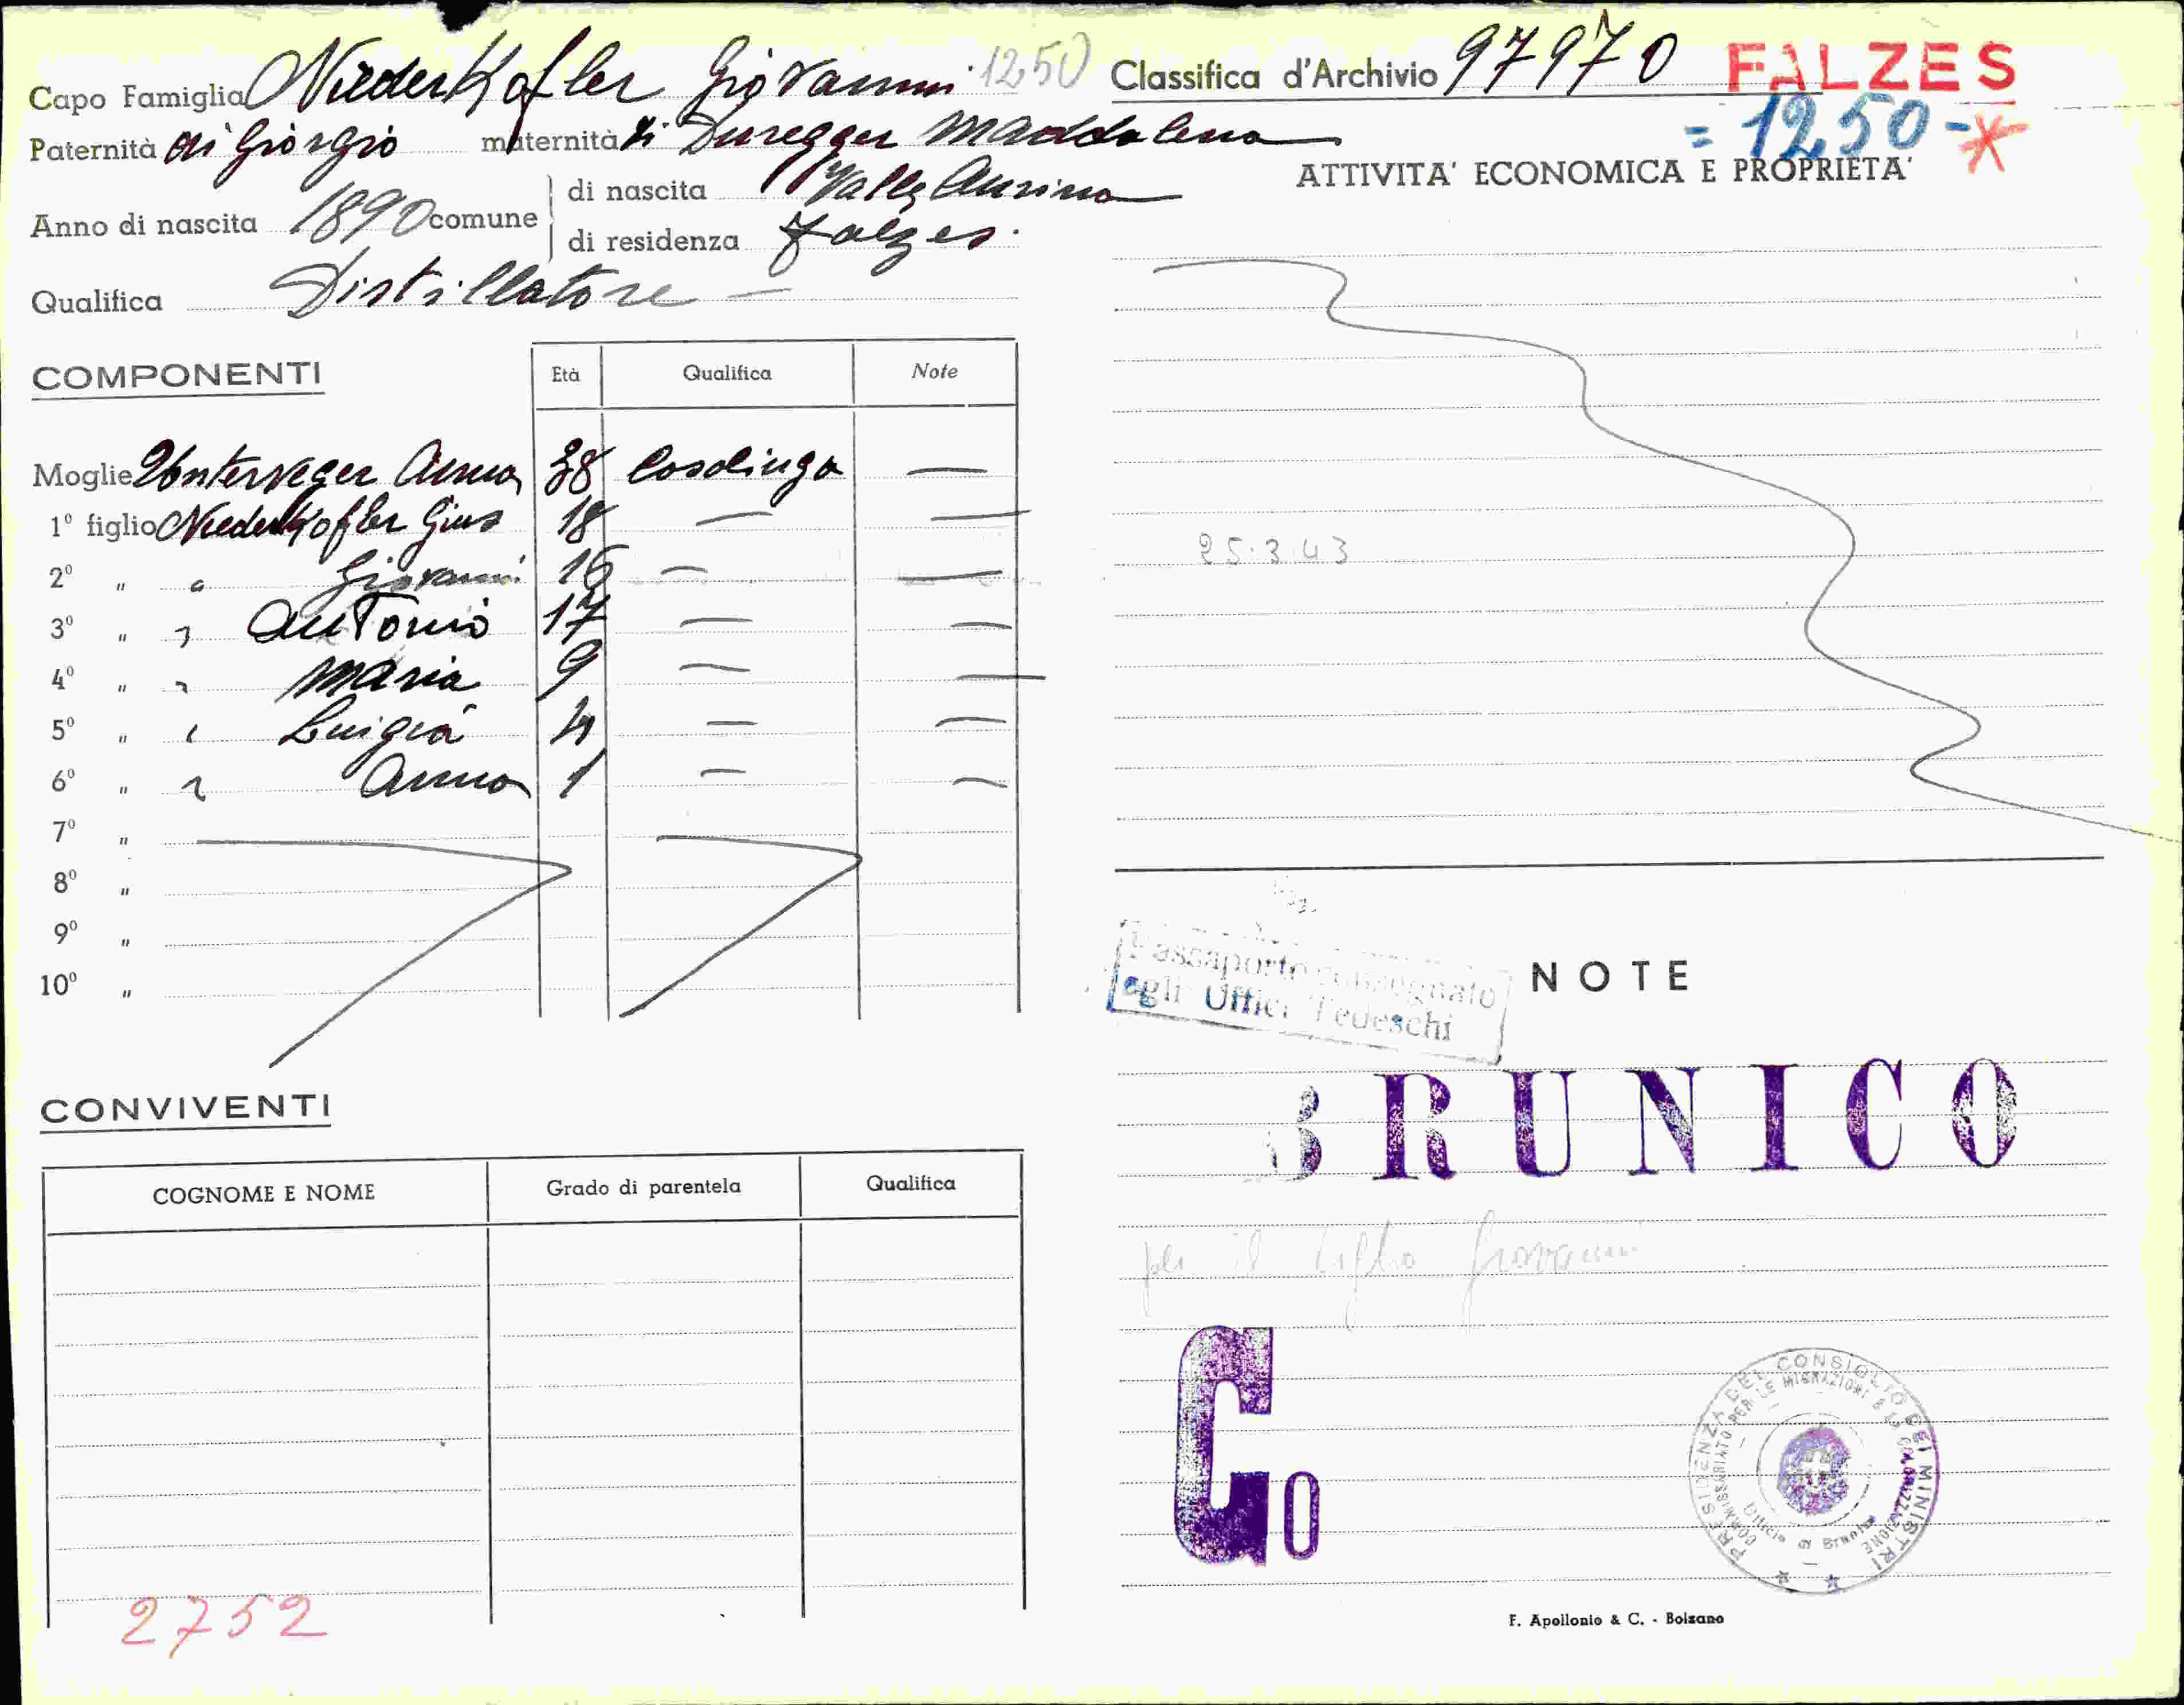 Capo Famiglia Niederkofler Giovanni 1250
Paternità di Giorgio maternità di Duregger Maddalena
Anno di nascita 1890 comune di nascita Valle Aurina
di residenza Falzes.
Qualifica Distillatore —
COMPONENTI Età Qualifica Note
Moglie Unterweger Anna 38 Casalinga —
1º figlio Niederkofler Gius 18 — —
2º " " Giovanni 16 — —
3º " " Antonio 17 — —
4º " " Maria 9 — —
5º " " Luigia 4 — —
6º " " Anna 1 — —
7º "
8º "
9º "
10º "
CONVIVENTI
COGNOME E NOME Grado di parentela Qualifica
2752
Classifica d'Archivio 97970 FALZES
= 1250 - *
ATTIVITA' ECONOMICA E PROPRIETA'
25.3.43
Passaporto consegnato
agli Uffici Tedeschi
NOTE
BRUNICO
per il figlio Giovanni
Go
PRESIDENZA DEL CONSIGLIO DEI MINISTRI
COMMISSARIATO PER LE MIGRAZIONI E LA COLONIZZAZIONE
Ufficio di Brunico
F. Apollonio & C. - Bolzano